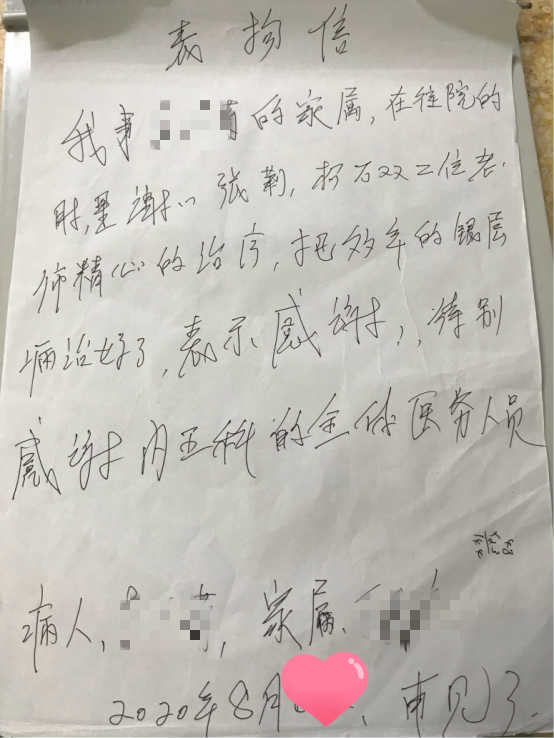 表扬信
我事 的家属,在往院的
时,墨谢心张莉,打万双二位老
师精心的治疗,把多年的银层
病治好了,表示感谢,特别
感谢内五科的全体医务人员
病人, ,家属,
2020年8月 ,再见了.